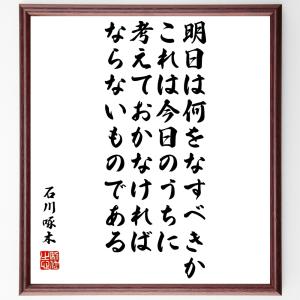 明日は何をなすべきか
これは今日のうちに
考えておかなければ
ならないものである
石川啄木